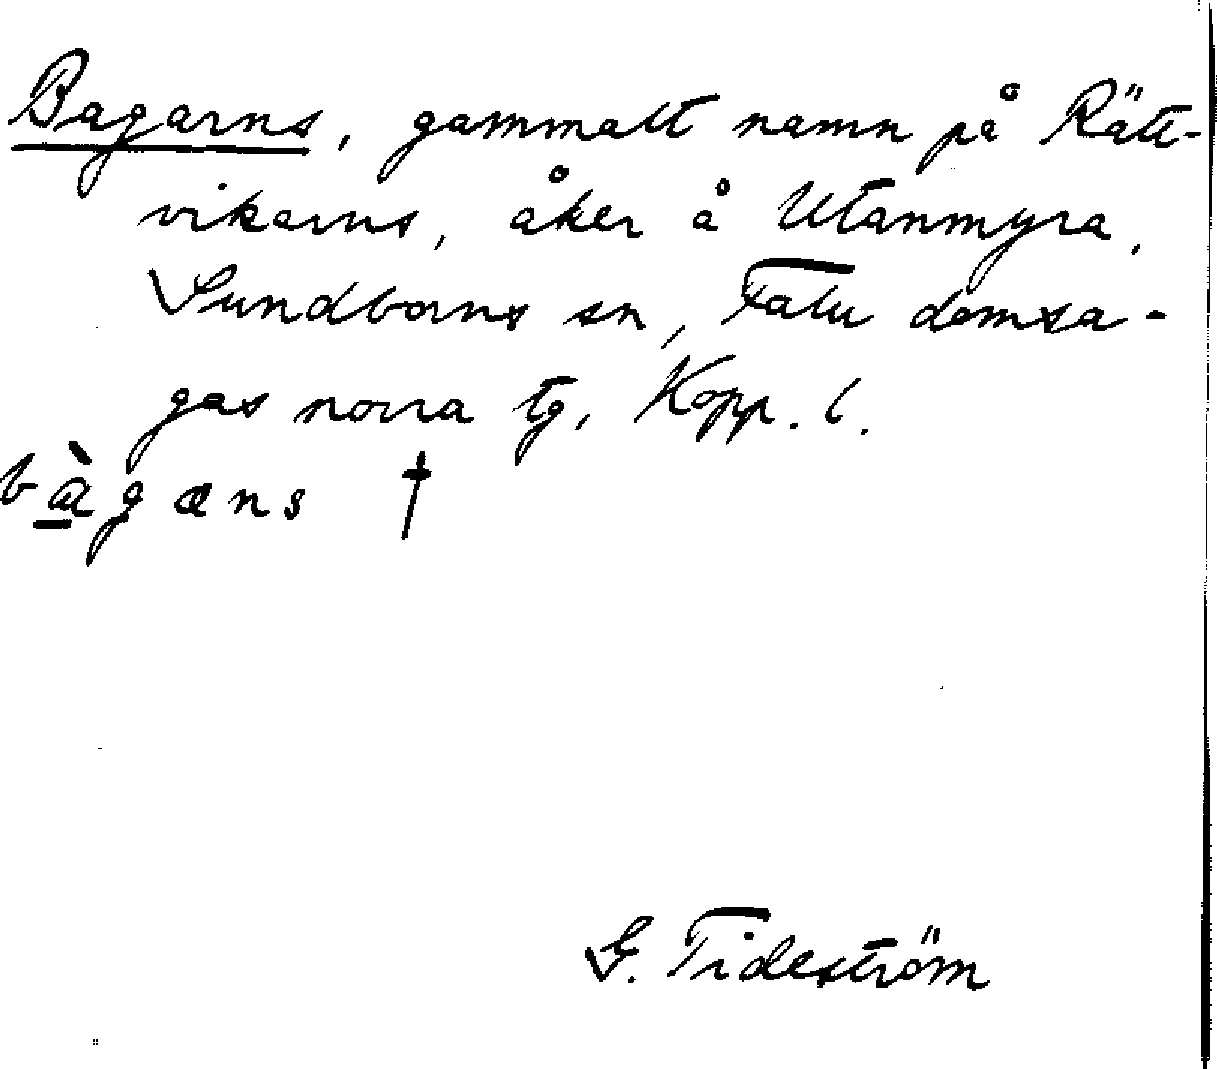 Bagarns, gammalt namn på Rätt-
vikarns, åker å Utanmyra,
Sundborns sn, Falu domsa-
gas norra tg, Kopp. l.
bàgæns †
G. Tideström